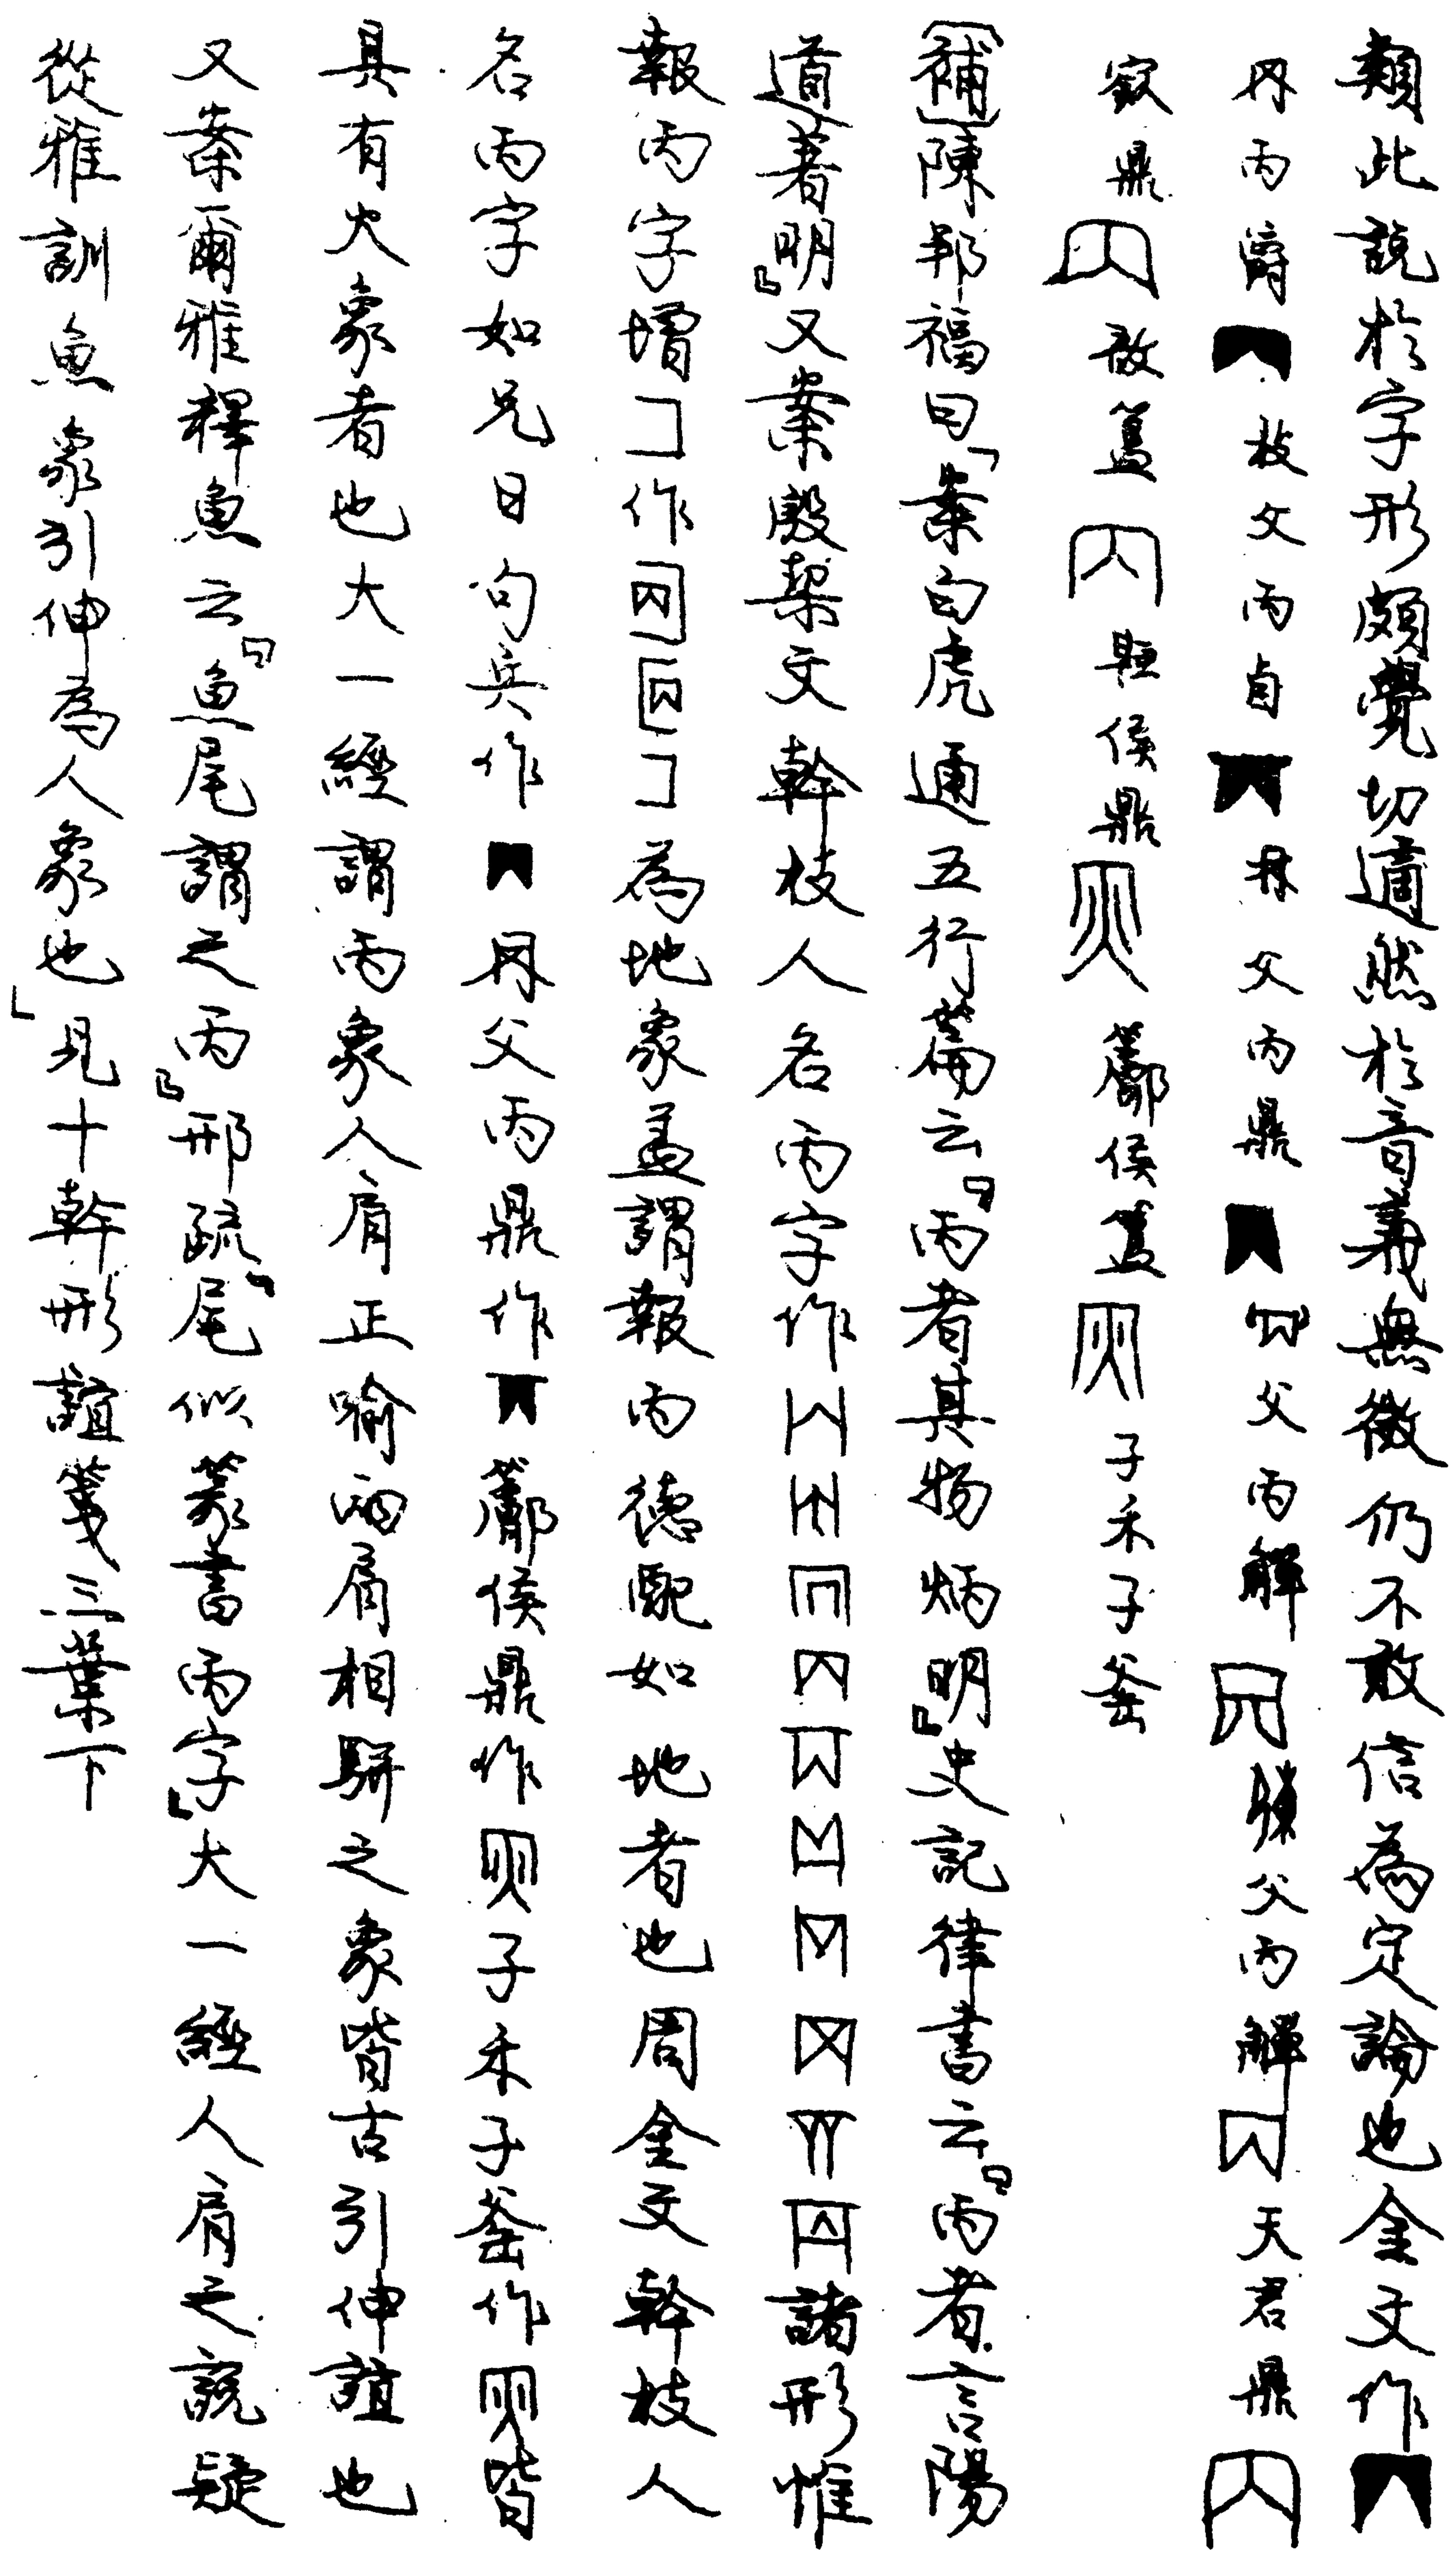 類此說於字形頗覺切適然於音義無徵仍不敢信為定論也金文作
冉丙爵 父丙卣 父丙鼎 父丙觶 父丙觶 天君鼎
鼎 簋 侯鼎 侯簋 子禾子釜
〔補〕陳邦福曰「案白虎通五行篇云『丙者其物炳明』史記律書云『丙者言陽
道著明』又案殷栔文幹枝人名丙字作諸形惟
報丙字增コ作コ為地象蓋謂報丙德配如地者也周金文幹枝人
名丙字如兄日句兵作冉父丙鼎作侯鼎作子禾子釜作皆
具有火象者也大一經謂丙象人肩正喻兩肩相駢之象皆古引伸誼也
又案爾雅釋魚云『魚尾謂之丙』邢疏『尾似篆書丙字』大一經人肩之說疑
從雅訓魚象引伸為人象也」見十幹形誼箋三葉下